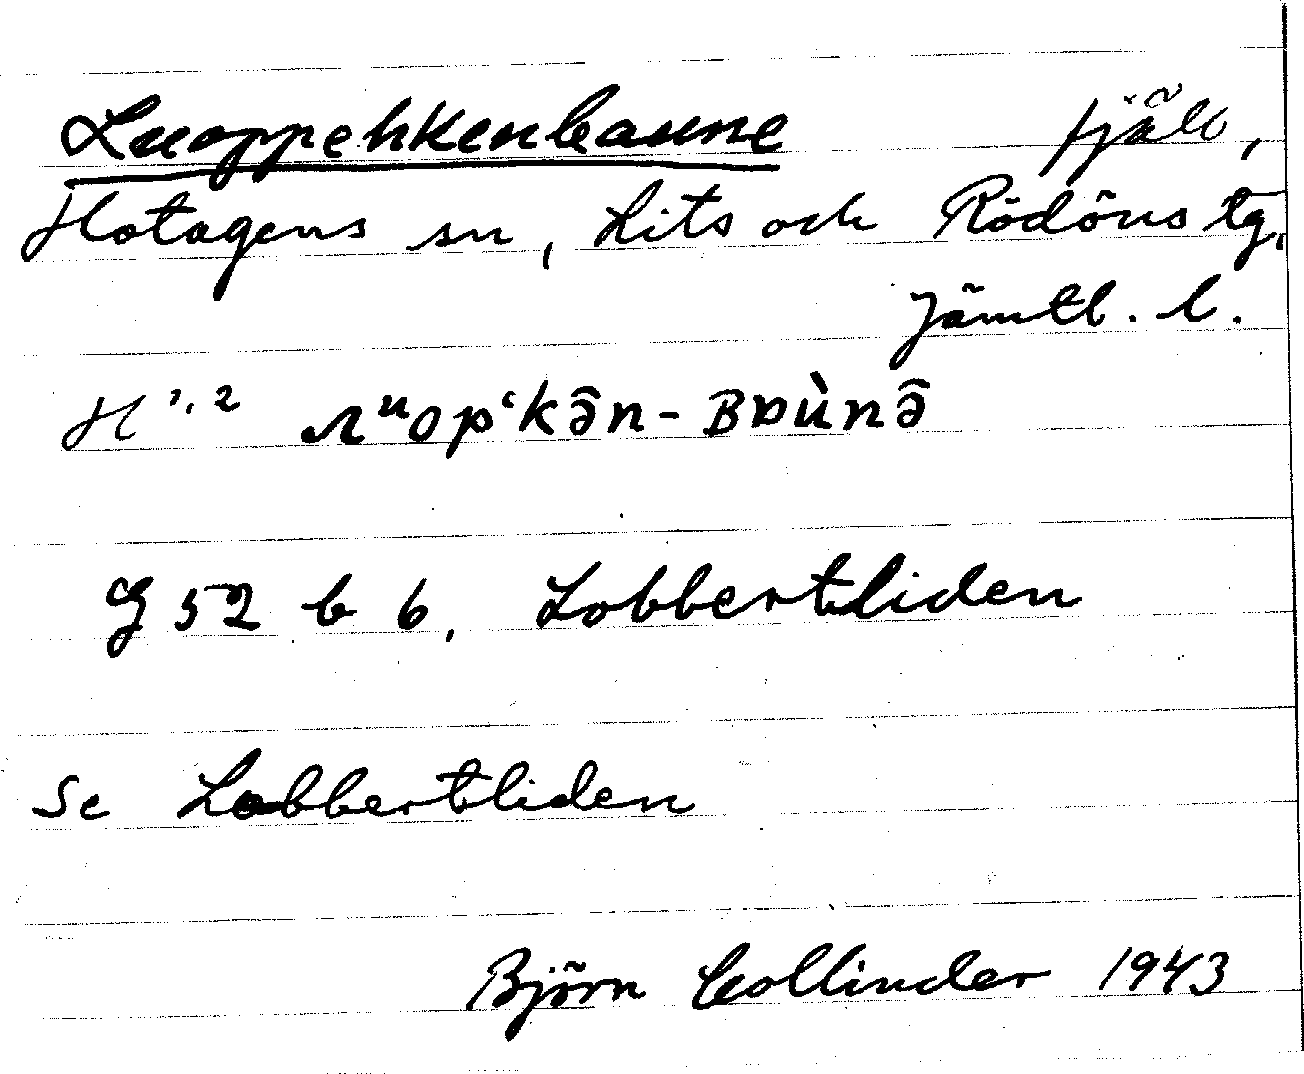 Luoppehkenbaune fjäll,
Hotagens sn, Lits och Rödöns tg,
Jämtl. l.
H 1, 2 ʌᵘopʻkə̂n-Bɒùnə̂
G 52 b 6, Lobbertliden
Se Lobbertliden
Björn Collinder 1943